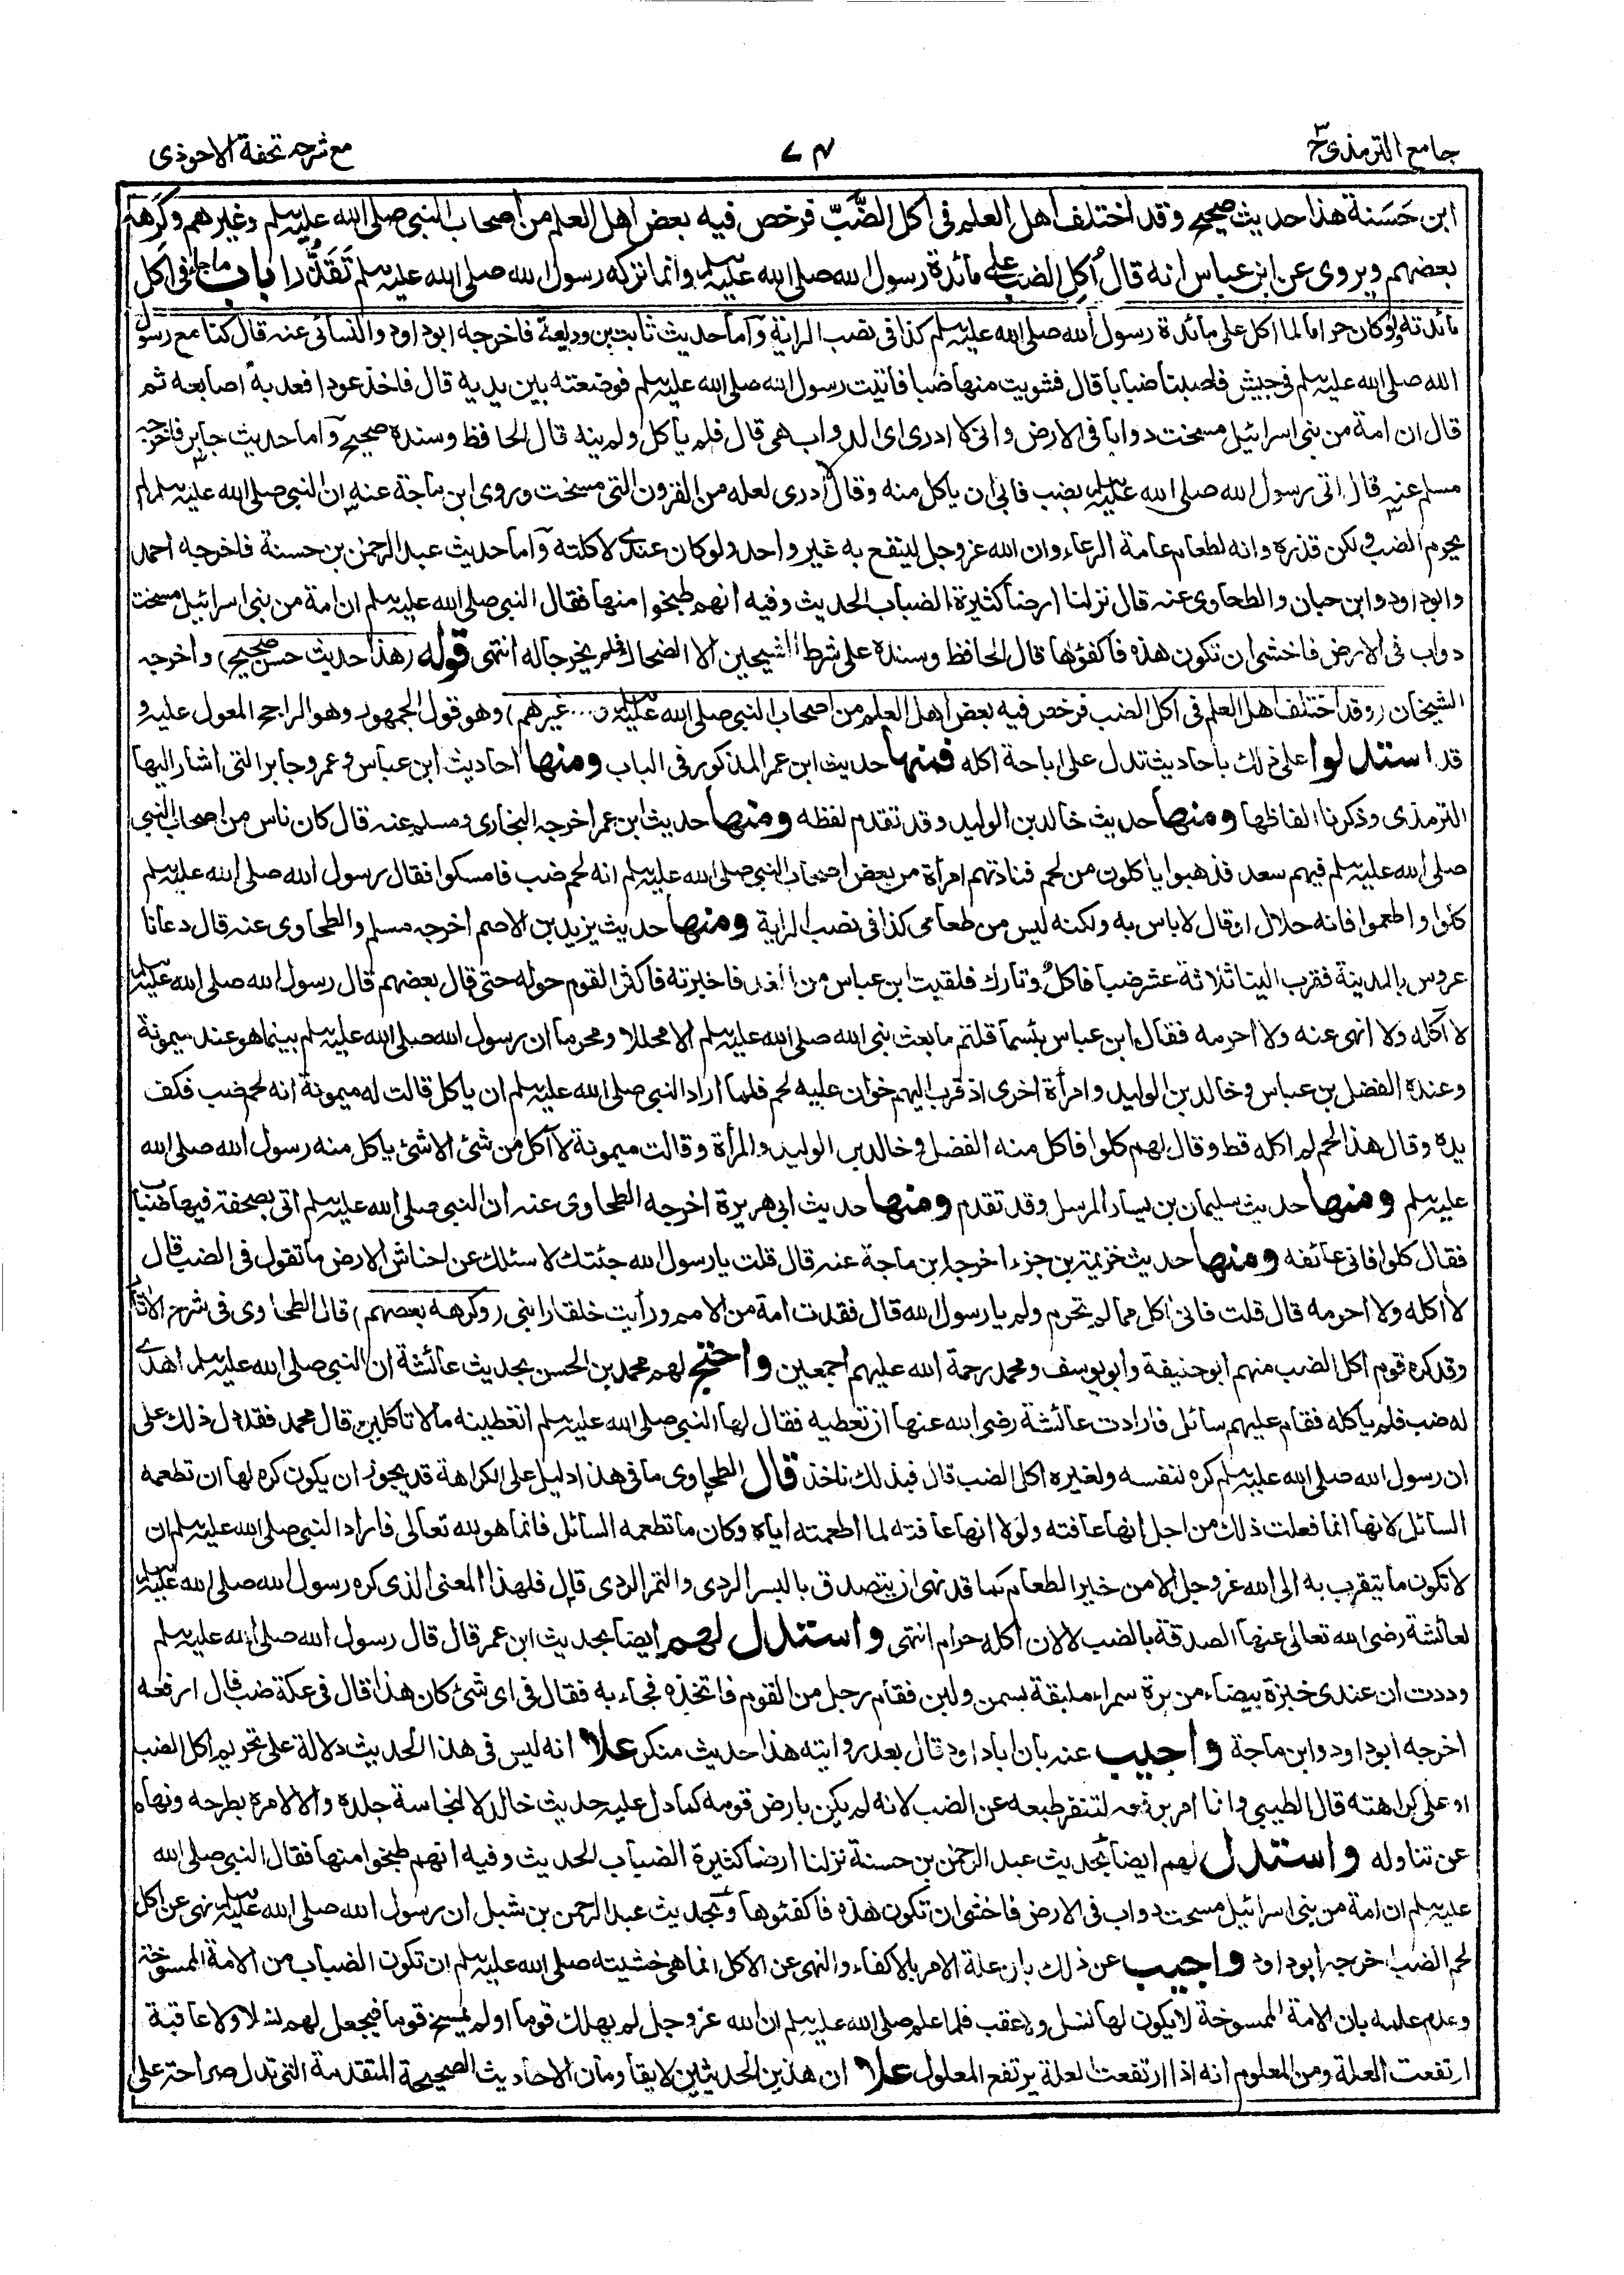 جامع الترمذي ج٣
٧٤
مع شرحه تحفة الاحوذي
ابن حَسَنة هذا حديث صحيح وقد اختلف اهل العلم في اكل الضَّبّ فرخص فيه بعض اهل العلم من اصحاب النبي صلى الله عليه وسلم وغيرهم وكَرِهه
بعضهم ويروى عن ابن عباس انه قال اُكِل الضب على مائدة رسول الله صلى الله عليه وسلم وانما تركه رسول الله صلى الله عليه وسلم تَقَذُّرا باب ما جاء في اَكل
مائدته ولو كان حراما لما اكل على مائدة رسول الله صلى الله عليه وسلم كذا في نصب الراية وآما حديث ثابت بن وديعة فاخرجه ابو داود والنسائى عنه قال كنا مع رسول
الله صلى الله عليه وسلم في جيش فاصبنا ضبابا قال فشويت منها ضبا فاتيت رسول الله صلى الله عليه وسلم فوضعته بين يديه قال فاخذ عودا فعد به اصابعه ثم
قال ان امة من بنى اسرائيل مسخت دوابا في الارض وانى لا ادرى اى الدواب هى قال فلم يأكل ولم ينه قال الحافظ وسنده صحيح وآما حديث جابر فاخرجه
مسلم عنه قال اتى رسول الله صلى الله عليه وسلم بضب فابى ان ياكل منه وقال لا ادرى لعله من القرون التى مسخت وروى ابن ماجة عنه ان النبي صلى الله عليه وسلم لم
يحرم الضب ولكن قذره وانه لطعام عامة الرعاء وان الله عز وجل لينفع به غير واحد ولو كان عندى لاكلته وآما حديث عبد الرحمن بن حسنة فاخرجه احمد
وابو داود وابن حبان والطحاوى عنه قال نزلنا ارضا كثيرة الضباب الحديث وفيه انهم طبخوا منها فقال النبي صلى الله عليه وسلم ان امة من بنى اسرائيل مسخت
دواب في الارض فاخشى ان تكون هذه فاكفؤها قال الحافظ وسنده على شرط الشيخين الا الضحاك فلم يخرجا له انتهى قوله (هذا حديث حسن صحيح) واخرجه
الشيخان (وقد اختلف اهل العلم في اكل الضب فرخص فيه بعض اهل العلم من اصحاب النبي صلى الله عليه وسلم و... غيرهم) وهو قول الجمهور وهو الراجح المعول عليه و
قد استدلوا على ذلك باحاديث تدل على اباحة اكله فمنها حديث ابن عمر المذكور في الباب ومنها احاديث ابن عباس وعمر وجابر التى اشار اليها
الترمذى وذكرنا الفاظها ومنها حديث خالد بن الوليد وقد تقدم لفظه ومنها حديث ابن عمر اخرجه البخارى ومسلم عنه قال كان ناس من اصحاب النبي
صلى الله عليه وسلم فيهم سعد فذهبوا ياكلون من لحم فنادتهم امرأة من بعض اصحاب النبي صلى الله عليه وسلم انه لحم ضب فامسكوا فقال رسول الله صلى الله عليه وسلم
كلوا واطعموا فانه حلال او قال لا باس به ولكنه ليس من طعامى كذا في نصب الراية ومنها حديث يزيد بن الاصم اخرجه مسلم والطحاوى عنه قال دعانا
عروس بالمدينة فقرب الينا ثلاثة عشر ضبا فاكلٌ وتارك فلقيت ابن عباس من الغد فاخبرته فاكثر القوم حوله حتى قال بعضهم قال رسول الله صلى الله عليه وسلم
لا آكله ولا انهى عنه ولا احرمه فقال ابن عباس بئسما قلتم ما بعث نبى الله صلى الله عليه وسلم الا محللا ومحرما ان رسول الله صلى الله عليه وسلم بينما هو عند ميمونة
وعنده الفضل بن عباس وخالد بن الوليد وامرأة اخرى اذ قرب اليهم خوان عليه لحم فلما اراد النبي صلى الله عليه وسلم ان ياكل قالت له ميمونة انه لحم ضب فكف
يده وقال هذا لحم لم اكله قط وقال لهم كلوا فاكل منه الفضل وخالد بن الوليد والمرأة وقالت ميمونة لا آكل من شئ الا شئ ياكل منه رسول الله صلى الله
عليه وسلم ومنها حديث سليمان بن يسار المرسل وقد تقدم ومنها حديث ابى هريرة اخرجه الطحاوى عنه ان النبي صلى الله عليه وسلم اتى بصحفة فيها ضباب
فقال كلوا فانى عائفه ومنها حديث خزيمة بن جزء اخرجه ابن ماجة عنه قال قلت يا رسول الله جئتك لاسئلك عن احناش الارض ما تقول في الضب قال
لا اكله ولا احرمه قال قلت فانى اكل مما لم تحرم ولم يا رسول الله قال فقدت امة من الامم ورأيت خلقا رابنى (وكرهه بعضهم) قال الطحاوى في شرح الآثار
وقد كره قوم اكل الضب منهم ابو حنيفة وابو يوسف ومحمد رحمة الله عليهم اجمعين واحتج لهم محمد بن الحسن بحديث عائشة ان النبي صلى الله عليه وسلم اهدى
له ضب فلم ياكله فقام عليهم سائل فارادت عائشة رضى الله عنها ان تعطيه فقال لها النبي صلى الله عليه وسلم اتعطينه ما لا تاكلين قال محمد فقد دل ذلك على
ان رسول الله صلى الله عليه وسلم كره لنفسه ولغيره اكل الضب قال فبذلك ناخذ قال الطحاوى ما في هذا دليل على الكراهة قد يجوز ان يكون كره لها ان تطعمه
السائل لانها انما فعلت ذلك من اجل انها عافته ولولا انها عافته لما اطعمته اياه وكان ما تطعمه السائل فانما هو لله تعالى فاراد النبي صلى الله عليه وسلم ان
لا تكون ما يتقرب به الى الله عز وجل الا من خير الطعام كما قد نهى ان يتصدق بالبسر الردى والتمر الردى قال فلهذا المعنى الذى كره رسول الله صلى الله عليه وسلم
لعائشة رضى الله تعالى عنها الصدقة بالضب لا لان اكله حرام انتهى واستدل لهم ايضا بحديث ابن عمر قال قال رسول الله صلى الله عليه وسلم
وددت ان عندى خبزة بيضاء من برة سمراء ملبقة بسمن ولبن فقام رجل من القوم فاتخذه فجاء به فقال في اى شئ كان هذا قال في عكة ضب قال ارفعه
اخرجه ابو داود وابن ماجة واجيب عنه بان ابا داود قال بعد روايته هذا حديث منكر علا انه ليس في هذا الحديث دلالة على تحريم اكل الضب
او على كراهته قال الطيبي وانما امر برفعه لتنفر طبعه عن الضب لانه لم يكن بارض قومه كما دل عليه حديث خالد لا لنجاسة جلده والا لامره بطرحه ونهاه
عن تناوله واستدل لهم ايضا بحديث عبد الرحمن بن حسنة نزلنا ارضا كثيرة الضباب الحديث وفيه انهم طبخوا منها فقال النبي صلى الله
عليه وسلم ان امة من بنى اسرائيل مسخت دواب في الارض فاخشى ان تكون هذه فاكفئوها وبحديث عبد الرحمن بن شبل ان رسول الله صلى الله عليه وسلم نهى عن اكل
لحم الضب اخرجه ابو داود واجيب عن ذلك بان علة الامر بالاكفاء والنهى عن الاكل انما هى خشيته صلى الله عليه وسلم ان تكون الضباب من الامة الممسوخة
وعدم علمه بان الامة الممسوخة لا يكون لها نسل ولا عقب فلما علم صلى الله عليه وسلم ان الله عز وجل لم يهلك قوما او لم يمسخ قوما فيجعل لهم نسلا ولا عاقبة
ارتفعت العلة ومن المعلوم انه اذا ارتفعت العلة يرتفع المعلول علا ان هذين الحديثين لا يقاومان الاحاديث الصحيحة المتقدمة التى تدل صراحة على